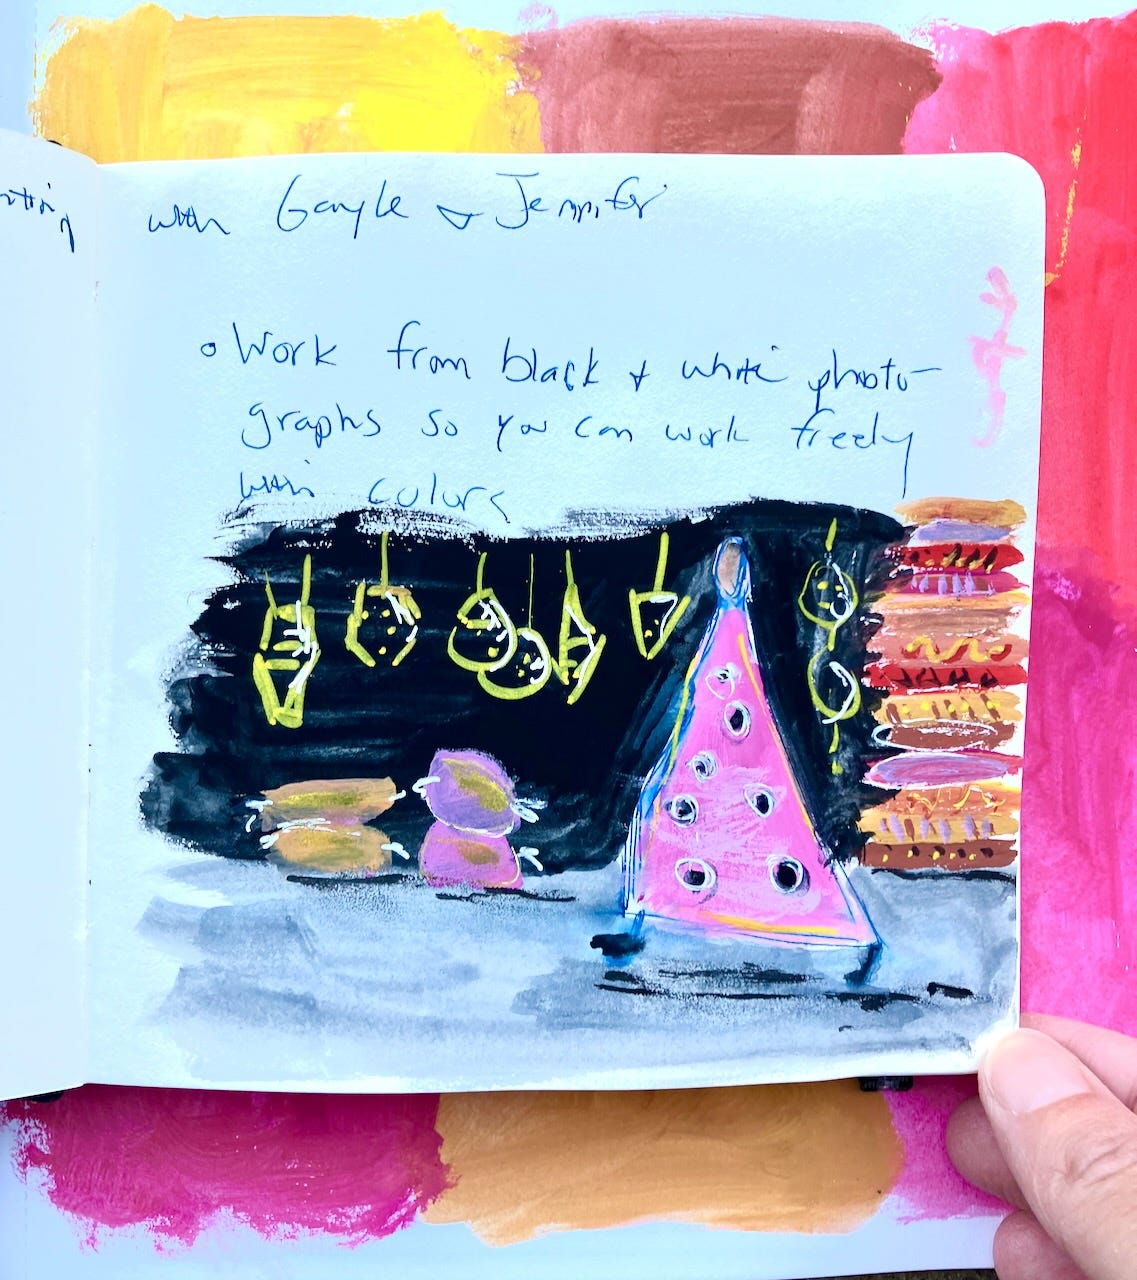 with Gayle & Jennifer
• Work from black & white photo-
graphs so you can work freely
with colors